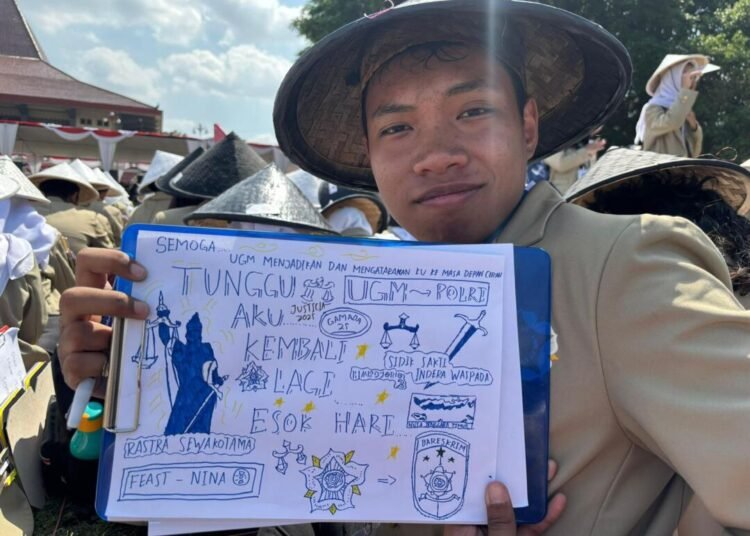 SEMOGA...
UGM MENJADIKAN DAN MENGATARAKAN KU KE MASA DEPAN CERAH
TUNGGU
AKU
KEMBALI
LAGI
ESOK HARI
JUSTICIA
2025
UGM → POLRI
GAMADA
25
SIDIK SAKTI
INDERA WASPADA
RASTRA SEWAKOTAMA
FEAST - NINA
BARESKRIM